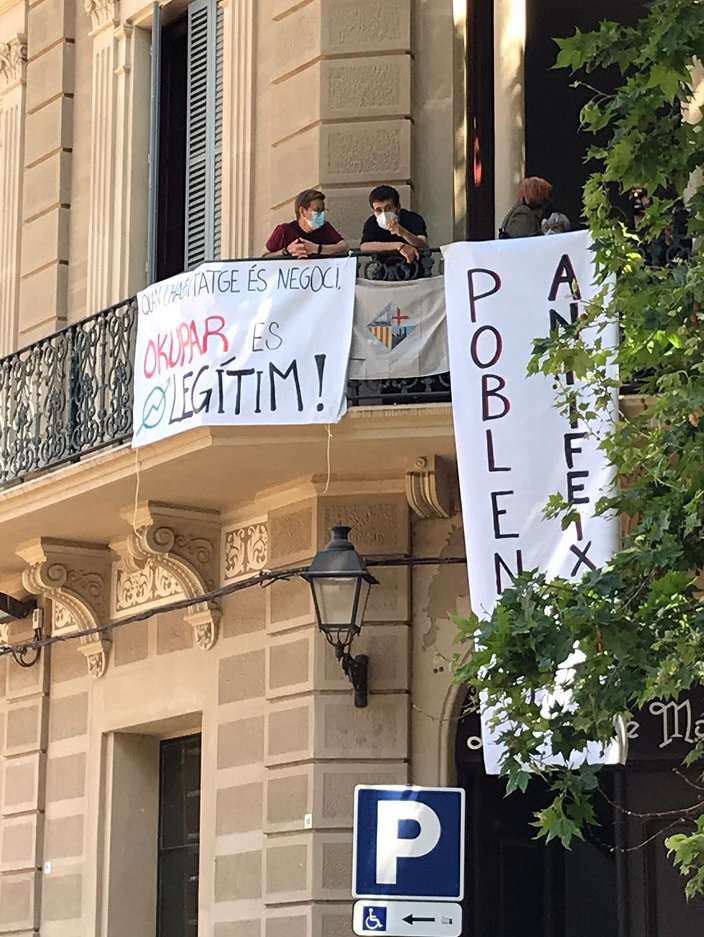 QUAN L'HABITATGE ÉS NEGOCI,
OKUPAR ES
LEGÍTIM!
POBLEN
ANTIFEIX
P